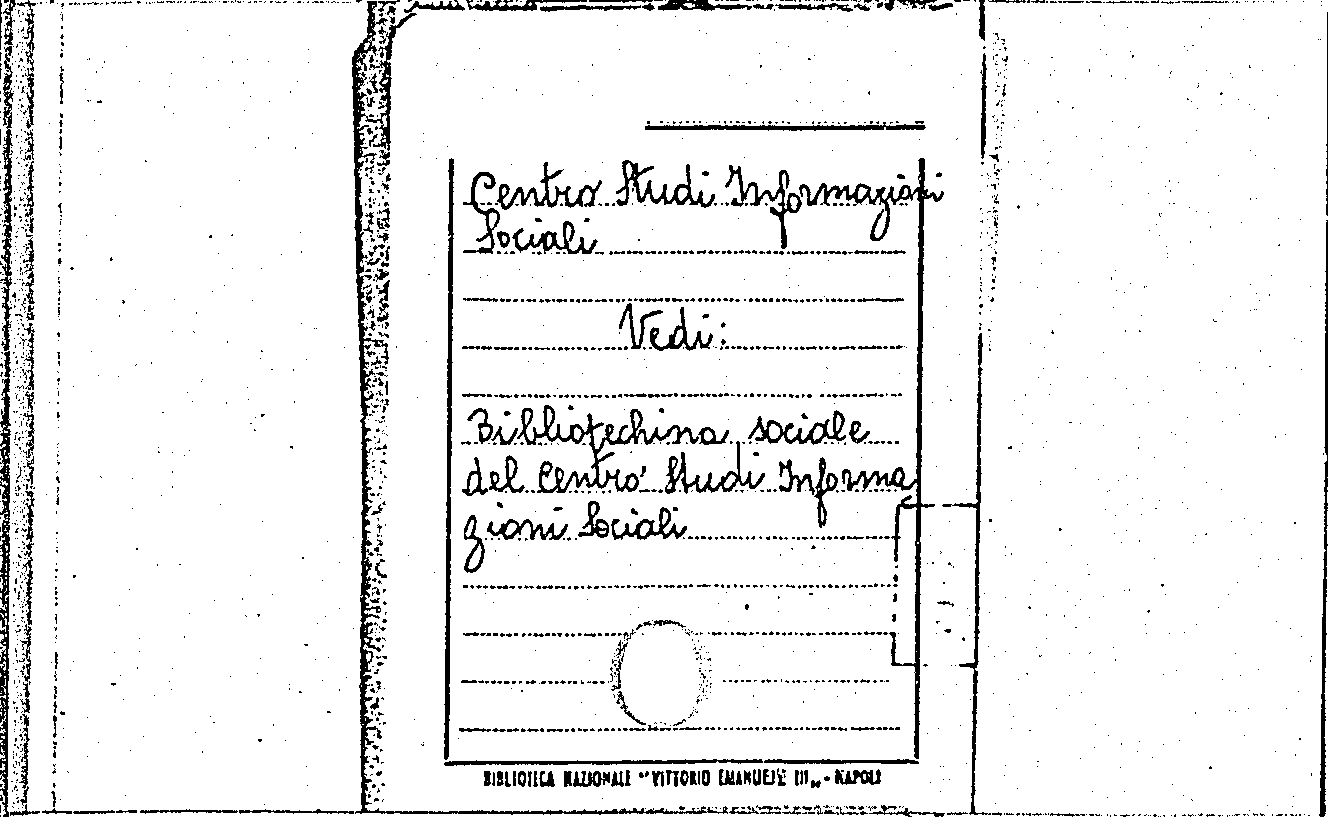 Centro Studi Informazioni
Sociali
Vedi:
Bibliotechina sociale
del Centro Studi Informa
zioni Sociali
BIBLIOTECA NAZIONALE "VITTORIO EMANUELE III„ - NAPOLI